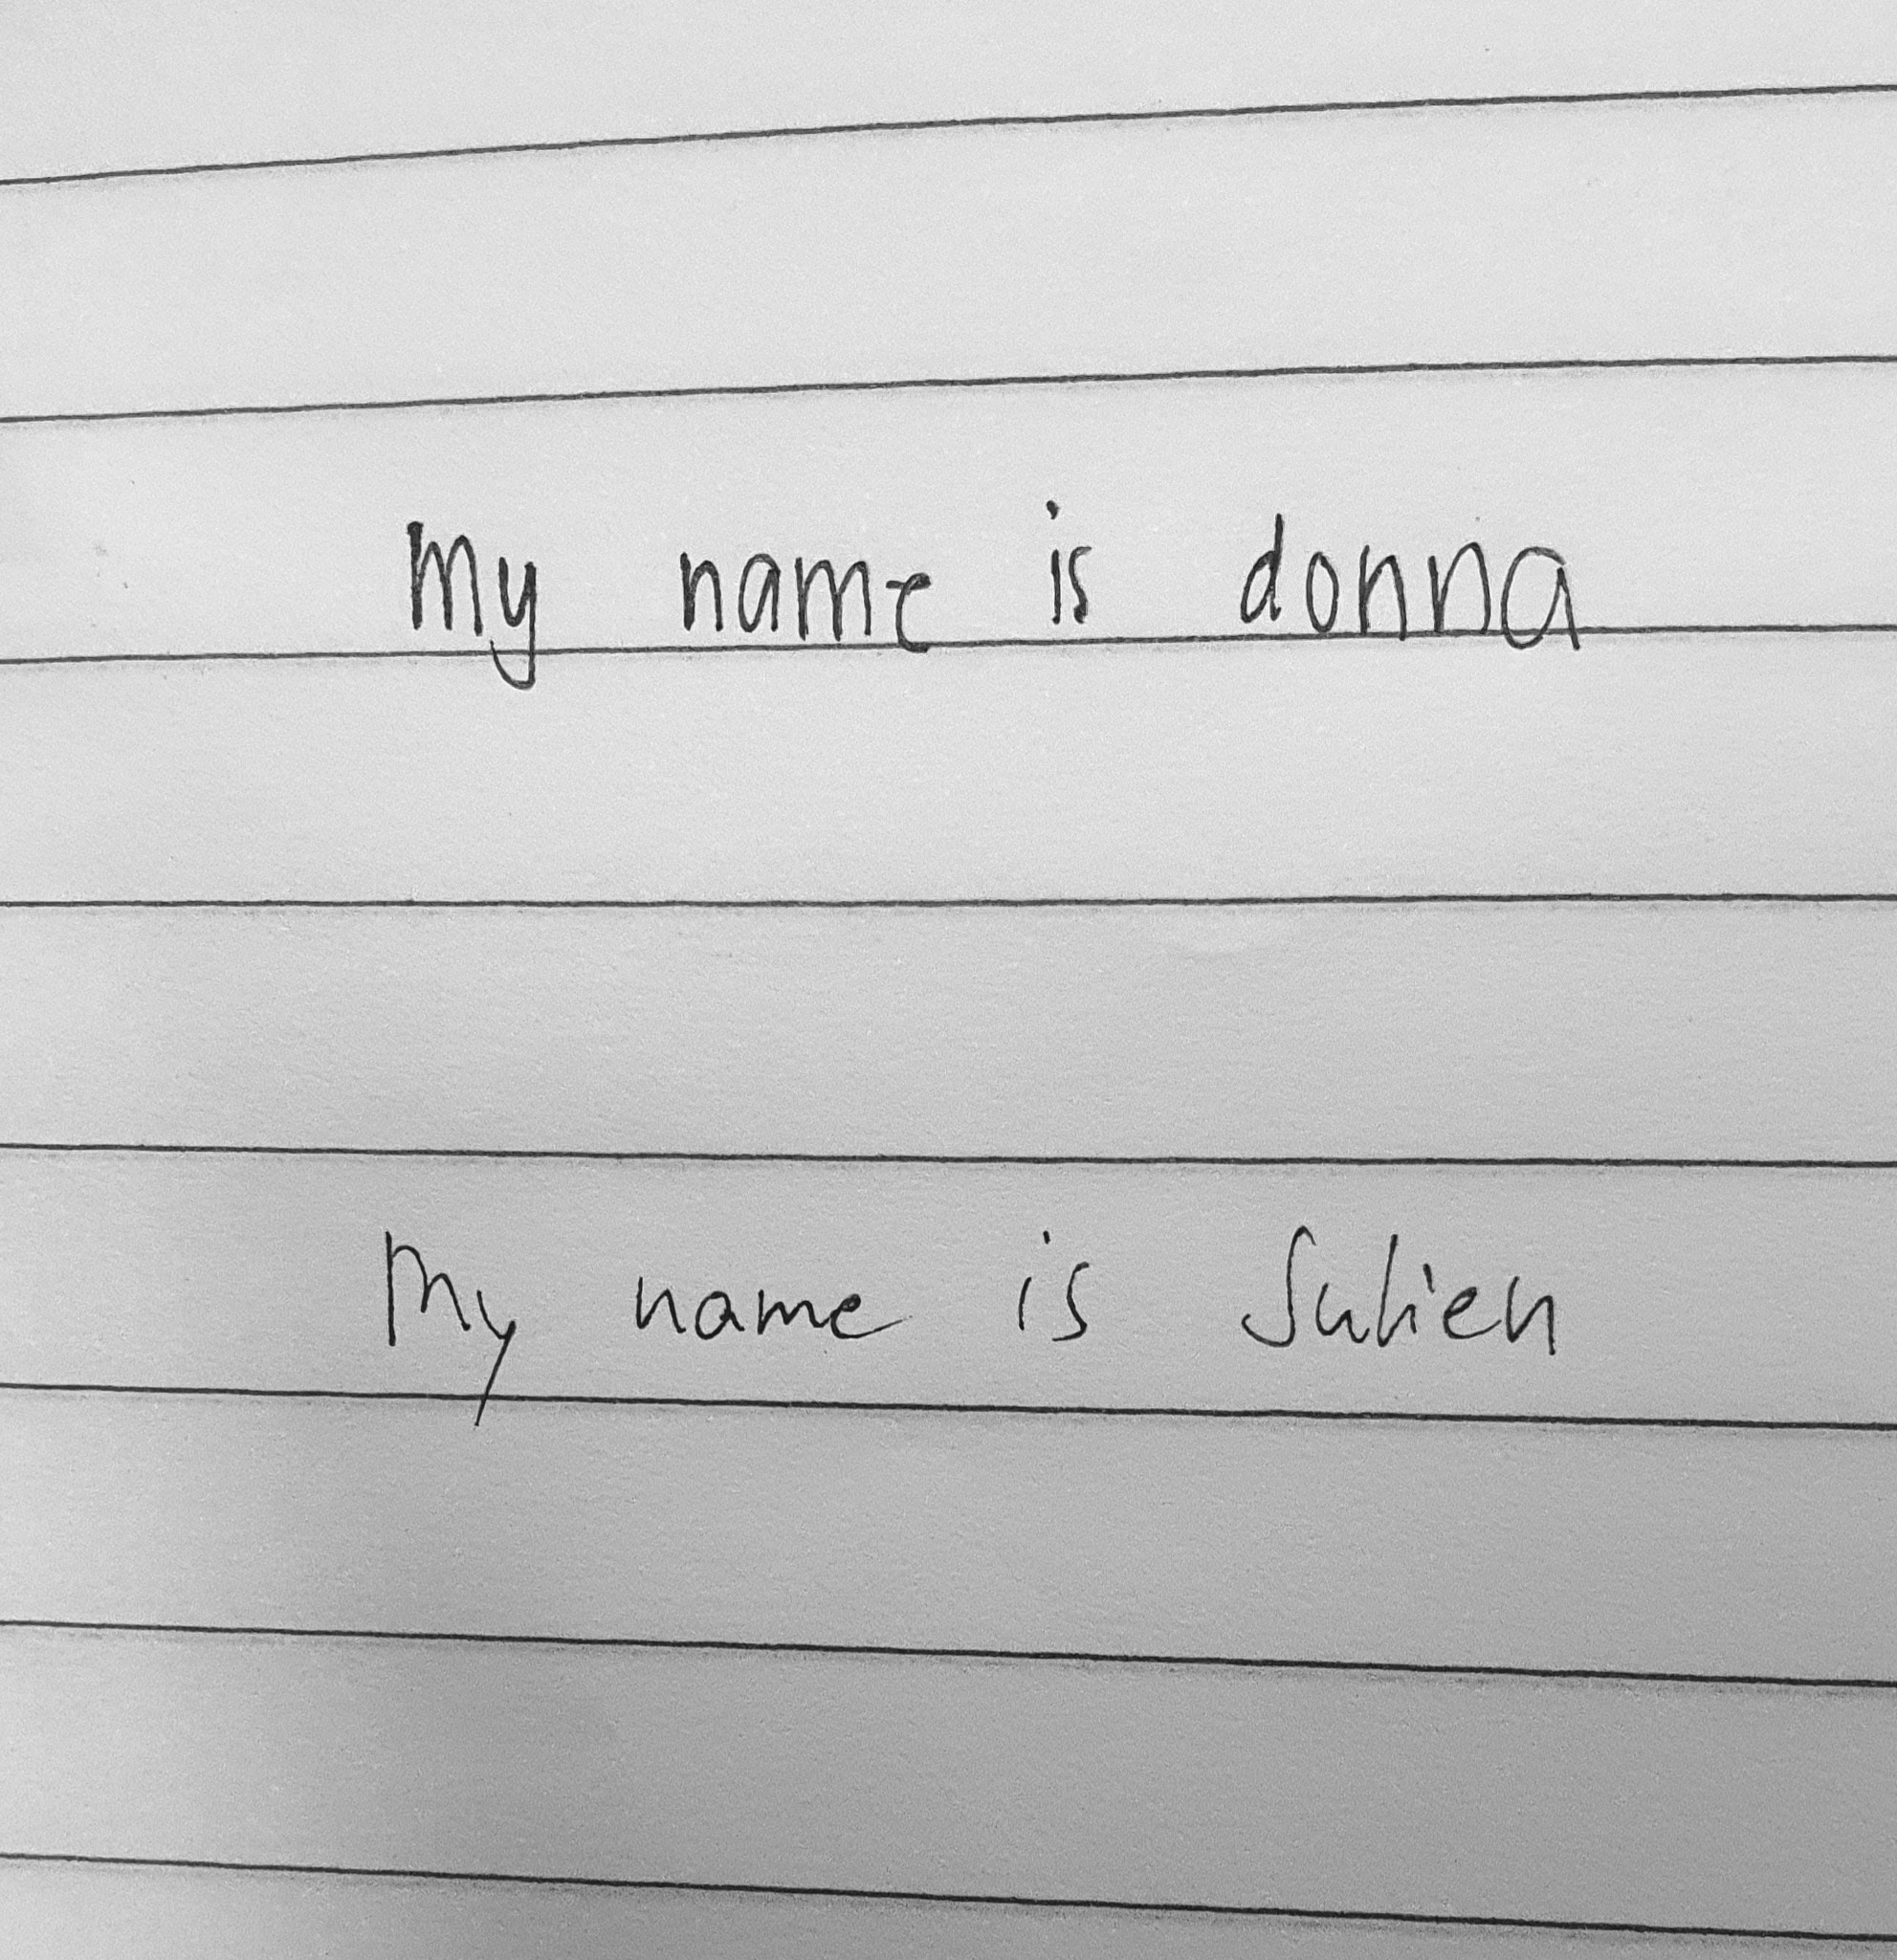 My name is donna
My name is Julien